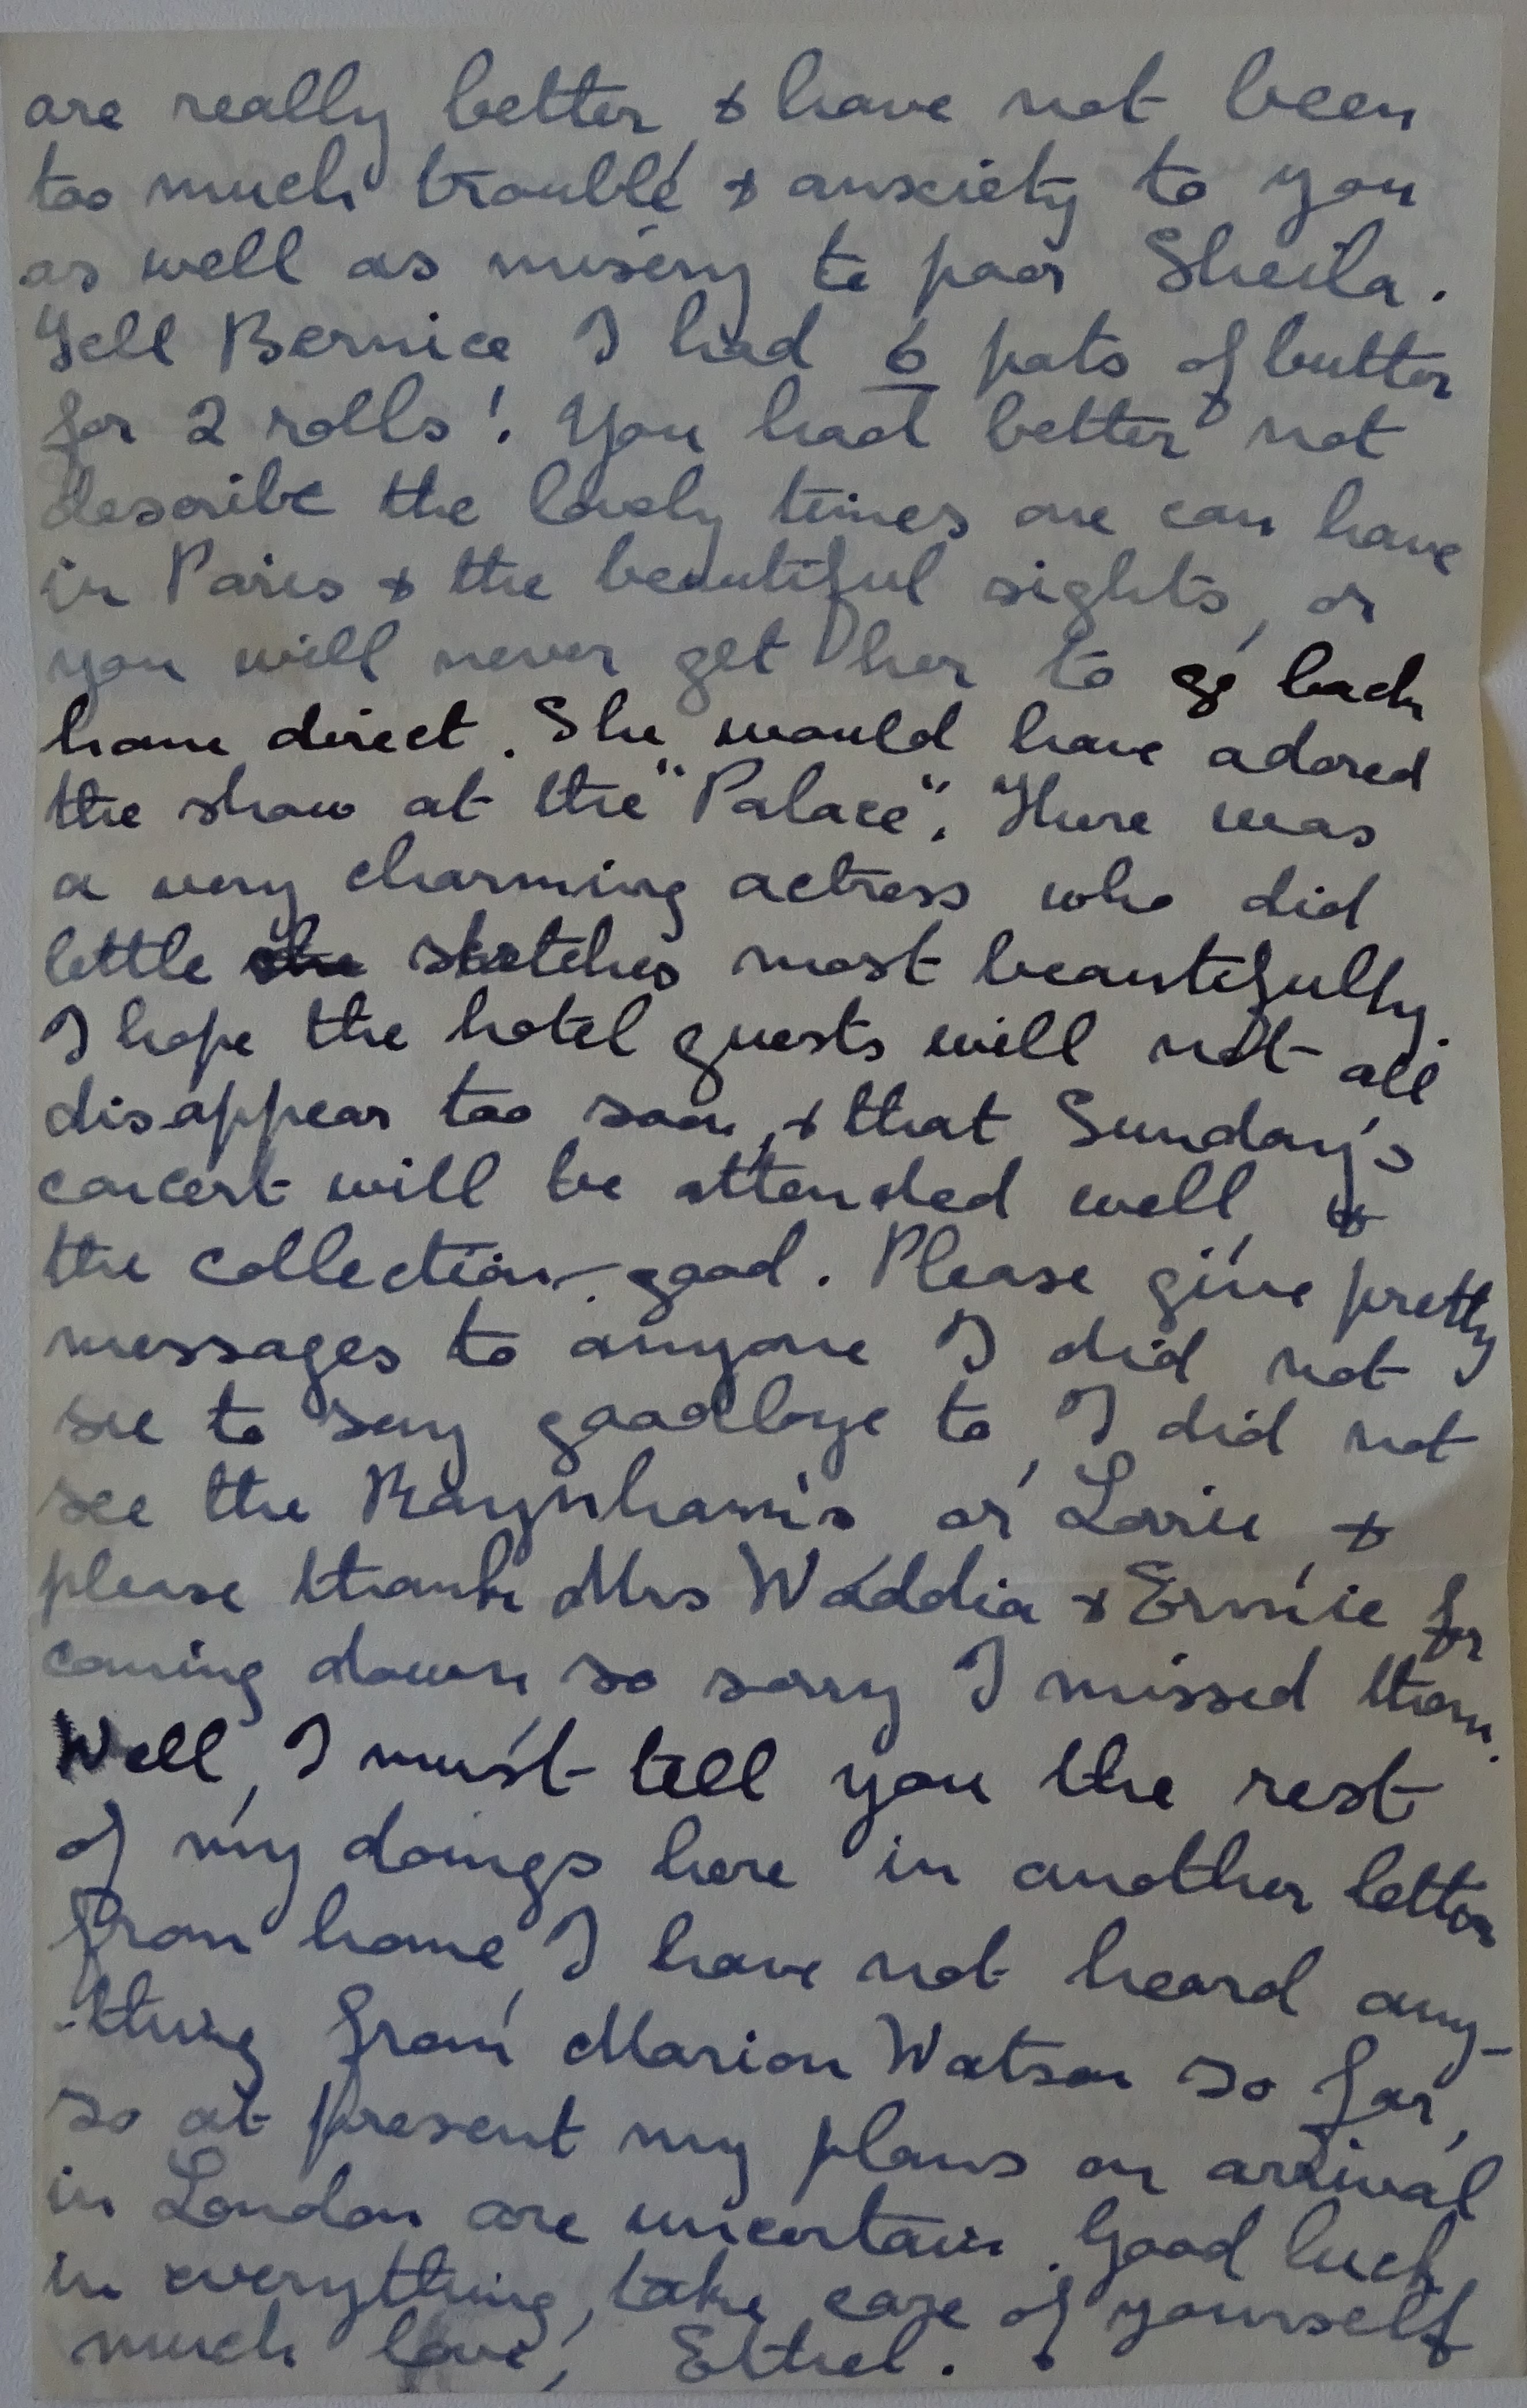 are really better, & have not been
too much trouble & anxiety to you
as well as misery to poor Sheila.
Tell Bernice I had 6 pats of butter
for 2 rolls! You had better not
describe the lovely times one can have
in Paris & the beautiful sights, or
you will never get her to go back
home direct. She would have adored
the show at the "Palace". There was
a very charming actress who did
little she sketches most beautifully.
I hope the hotel guests will not all
disappear too soon, & that Sunday's
concert will be attended well, &
the collection - good. Please give pretty
messages to anyone I did not
see to say goodbye to, I did not
see the Raynham's or Lorie, &
please thank Mrs Waddia & Ernie for
coming down, so sorry I missed them.
Well, I must tell you the rest
of my doings here in another letter
from home, I have not heard any-
-thing from Marion Watson so far,
so at present my plans on arrival
in London are uncertain. Good luck
in everything, take care of yourself
much love, Ethel.